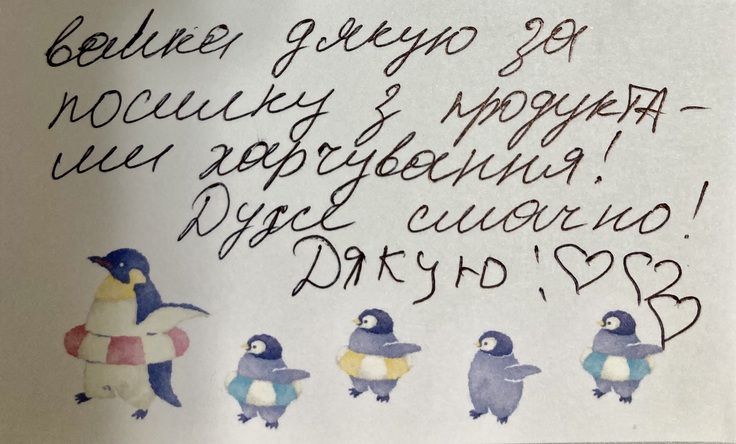 велике дякую за
посилку з продукта-
ми харчування!
Дуже смачно!
Дякую!